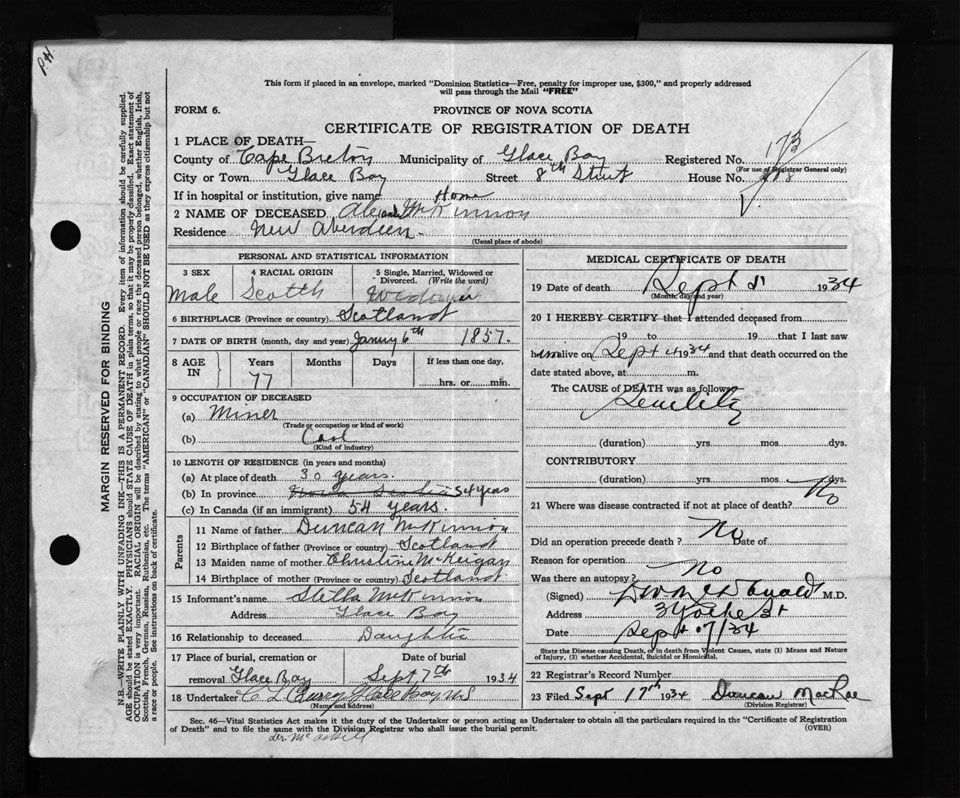 P.41
This form if placed in an envelope, marked "Dominion Statistics—Free, penalty for improper use, $300," and properly addressed
will pass through the Mail "FREE"
FORM 6.
PROVINCE OF NOVA SCOTIA
CERTIFICATE OF REGISTRATION OF DEATH
1 PLACE OF DEATH—
County of Cape Breton Municipality of Glace Bay Registered No. 173
(For use of Registrar General only)
City or Town Glace Bay Street 8th Street House No.
If in hospital or institution, give name Home
2 NAME OF DECEASED McKinnon
Residence New Aberdeen.
(Usual place of abode)
MARGIN RESERVED FOR BINDING
N.B.—WRITE PLAINLY WITH UNFADING INK—THIS IS A PERMANENT RECORD. Every item of information should be carefully supplied.
AGE should be stated EXACTLY. PHYSICIANS should STATE CAUSE OF DEATH in plain terms, so that it may be properly classified. Exact statement of
OCCUPATION is very important. RACIAL ORIGIN will be described by stating to what people or race the deceased person belonged, whether English, Irish,
Scottish, French, German, Russian, Ruthenian, etc. The terms "AMERICAN" or "CANADIAN" SHOULD NOT BE USED as they express citizenship but not
a race or people. See instructions on back of certificate.
PERSONAL AND STATISTICAL INFORMATION
3 SEX
Male
4 RACIAL ORIGIN
Scotch
5 Single, Married, Widowed or
Divorced. (Write the word)
Widower
6 BIRTHPLACE (Province or country) Scotland
7 DATE OF BIRTH (month, day and year) 6th 1857.
8 AGE
IN
Years
77
Months
Days
If less than one day,
hrs. or min.
9 OCCUPATION OF DECEASED
(a) Miner
(Trade or occupation or kind of work)
(b) Coal
(Kind of industry)
10 LENGTH OF RESIDENCE (in years and months)
(a) At place of death 30 years.
(b) In province Nova Scotia 54 years
(c) In Canada (if an immigrant) 54 years.
Parents
11 Name of father Duncan McKinnon
12 Birthplace of father (Province or country) Scotland
13 Maiden name of mother Christine McKeigan
14 Birthplace of mother (Province or country) Scotland
15 Informant's name Stella McKinnon
Address Glace Bay
16 Relationship to deceased Daughter
17 Place of burial, cremation or
removal Glace Bay
Date of burial
Sept, 7th 1934
18 Undertaker C L Curry Glace Bay NS
(Name and address)
MEDICAL CERTIFICATE OF DEATH
19 Date of death Sept 1934
(Month, day and year)
20 I HEREBY CERTIFY that I attended deceased from
19 to 19 that I last saw
him alive on Sept 4 1934 and that death occurred on the
date stated above, at m.
The CAUSE of DEATH was as follows
Senility
(duration) yrs. mos. dys.
CONTRIBUTORY
(duration) yrs. mos. dys.
21 Where was disease contracted if not at place of death? No
Did an operation precede death? No Date of
Reason for operation
Was there an autopsy? No
(Signed) M.D.
Address 3 Yorke St
Date Sept 07/34
State the Disease causing Death, or in death from Violent Causes, state (1) Means and Nature
of Injury, (2) whether Accidental, Suicidal or Homicidal.
22 Registrar's Record Number
23 Filed Sept 17th 1934 Duncan MacRae
(Division Registrar)
Sec. 46—Vital Statistics Act makes it the duty of the Undertaker or person acting as Undertaker to obtain all the particulars required in the "Certificate of Registration
of Death" and to file the same with the Division Registrar who shall issue the burial permit.
(OVER)